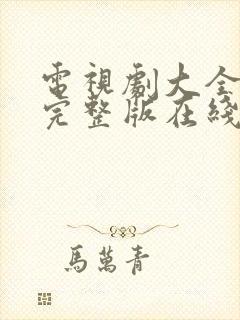 電視劇大全
完整版在綫
馬萬青